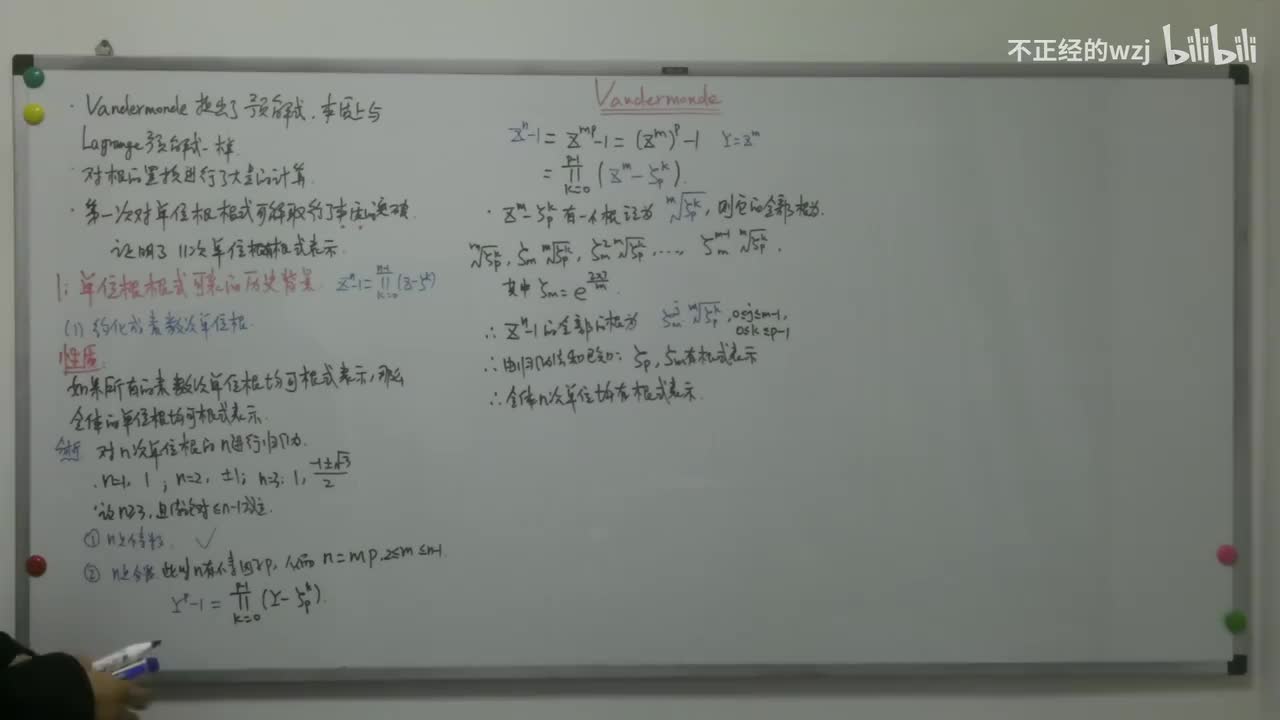 不正经的wzj bilibili
Vandermonde
· Vandermonde 提出了预解式，本质上与
Lagrange预解式一样.
· 对根的置换进行了大量的计算.
· 第一次对单位根根式可解取得了本质的突破.
证明了 11次单位根有根式表示.
1: 单位根根式可表的历史背景. zⁿ-1=∏_{k=0}^{n-1}(z-ζᵏ)
(1) 约化成素数次单位根.
性质:
如果所有的素数次单位根均可根式表示，那么
全体的单位根均可根式表示.
分析 对n次单位根的n进行归纳.
n=1, 1 ; n=2, ±1; n=3: 1, (-1±√3)/2
设n≥3, 且结论对≤n-1成立.
① n是素数. ✓
② n是合数. 此时n有素因子p, 从而 n=mp, 2≤m≤n-1.
Yᵖ-1=∏_{k=0}^{p-1}(Y-ζ_pᵏ).
zⁿ-1=z^{mp}-1=(zᵐ)ᵖ-1 Y=zᵐ
=∏_{k=0}^{p-1}(zᵐ-ζ_pᵏ).
· zᵐ-ζ_pᵏ有一个根记为 ᵐ√ζ_pᵏ, 则它的全部根为.
ᵐ√ζ_pᵏ, ζ_m ᵐ√ζ_pᵏ, ζ_m² ᵐ√ζ_pᵏ, ..., ζ_m^{m-1} ᵐ√ζ_pᵏ.
其中 ζ_m=e^{2πi/m}.
∴ zⁿ-1的全部的根为 ζ_mʲ·ᵐ√ζ_pᵏ, 0≤j≤m-1,
0≤k≤p-1
∴ 由归纳法和已知: ζ_p, ζ_m有根式表示
∴ 全体n次单位均有根式表示.